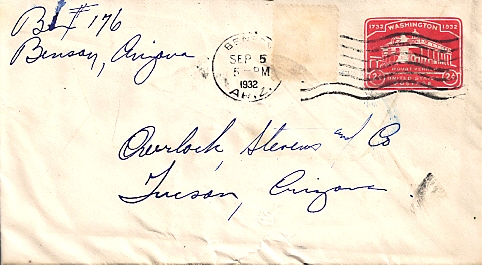 Bx # 176
Benson, Arizona
BENSON
SEP 5
5 - PM
1932
ARIZ.
1732 WASHINGTON 1932
MOUNT VERNON
2¢ UNITED STATES 2¢
POSTAGE
Overlock, Stevens and Co
Tucson, Arizona